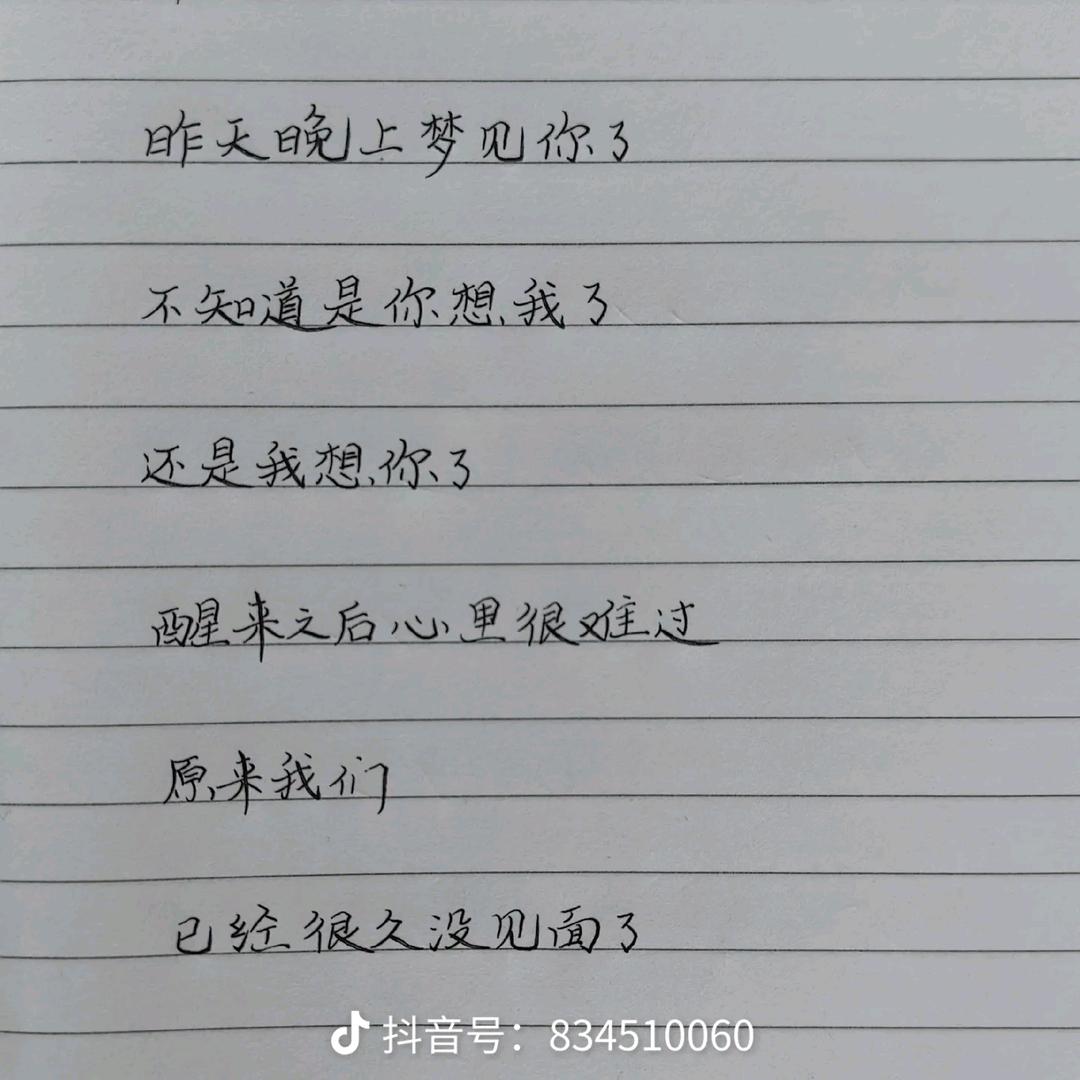 昨天晚上梦见你了
不知道是你想我了
还是我想你了
醒来之后心里很难过
原来我们
已经很久没见面了
抖音号：834510060